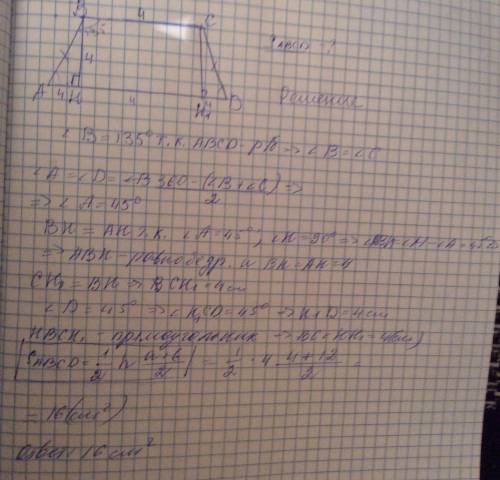 B 4 C
135
4
A 4 H 4 H₁ D
SABCD - ?
Решение
∠B = 135° т.к. ABCD - р/б => ∠B = ∠C
∠A = ∠D = 360 - (∠B + ∠C) / 2 =>
=> ∠A = 45°
BH = AH т.к. ∠A = 45°, ∠H = 90° => ∠H - ∠A = 45°
=> ABH - равнобедр. и BH = AH = 4
CH₁ = BH => CH₁ = 4 см
∠D = 45° => ∠H₁CD = 45° => H₁D = 4 см
HBCH₁ - прямоугольник => BC = HH₁ = 4 (см)
SABCD = 1/2 h (a+b)/2 = 1/2 · 4 (4+12)/2 =
= 16 (см²)
Ответ: 16 см²